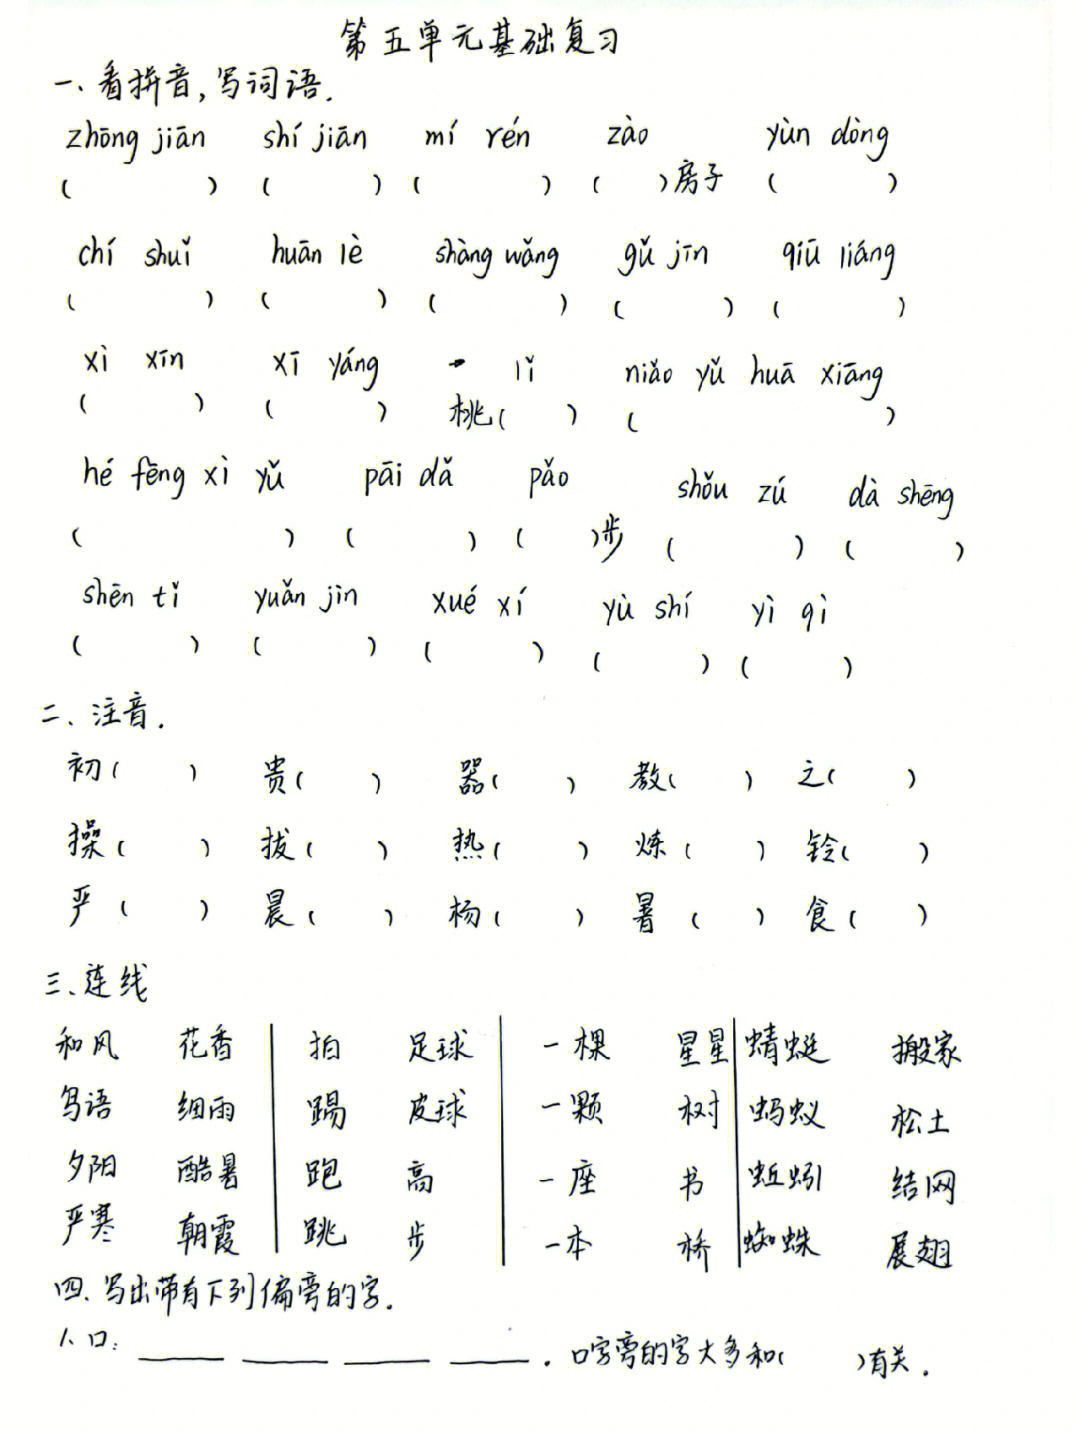 第五单元基础复习
一、看拼音,写词语.
zhōng jiān shí jiān mí rén zào yùn dòng
( ) ( ) ( ) ( )房子 ( )
chí shuǐ huān lè shàng wǎng gǔ jīn qiū liáng
( ) ( ) ( ) ( ) ( )
xì xīn xī yáng lǐ niǎo yǔ huā xiāng
( ) ( ) 桃( ) ( )
hé fēng xì yǔ pāi dǎ pǎo shǒu zú dà shēng
( ) ( ) ( )步 ( ) ( )
shēn tǐ yuǎn jìn xué xí yù shí yì qì
( ) ( ) ( ) ( ) ( )
二、注音.
初( ) 贵( ) 器( ) 教( ) 之( )
操( ) 拔( ) 热( ) 炼( ) 铃( )
严( ) 晨( ) 杨( ) 暑( ) 食( )
三、连线
和风 花香 拍 足球 一棵 星星 蜻蜓 搬家
鸟语 细雨 踢 皮球 一颗 树 蚂蚁 松土
夕阳 酷暑 跑 高 一座 书 蚯蚓 结网
严寒 朝霞 跳 步 一本 桥 蜘蛛 展翅
四、写出带有下列偏旁的字.
1、口: ____ ____ ____ ____ . 口字旁的字大多和( )有关.